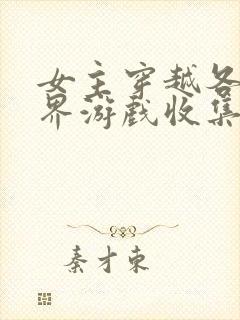 女主穿越各
界游戏收集
秦才东